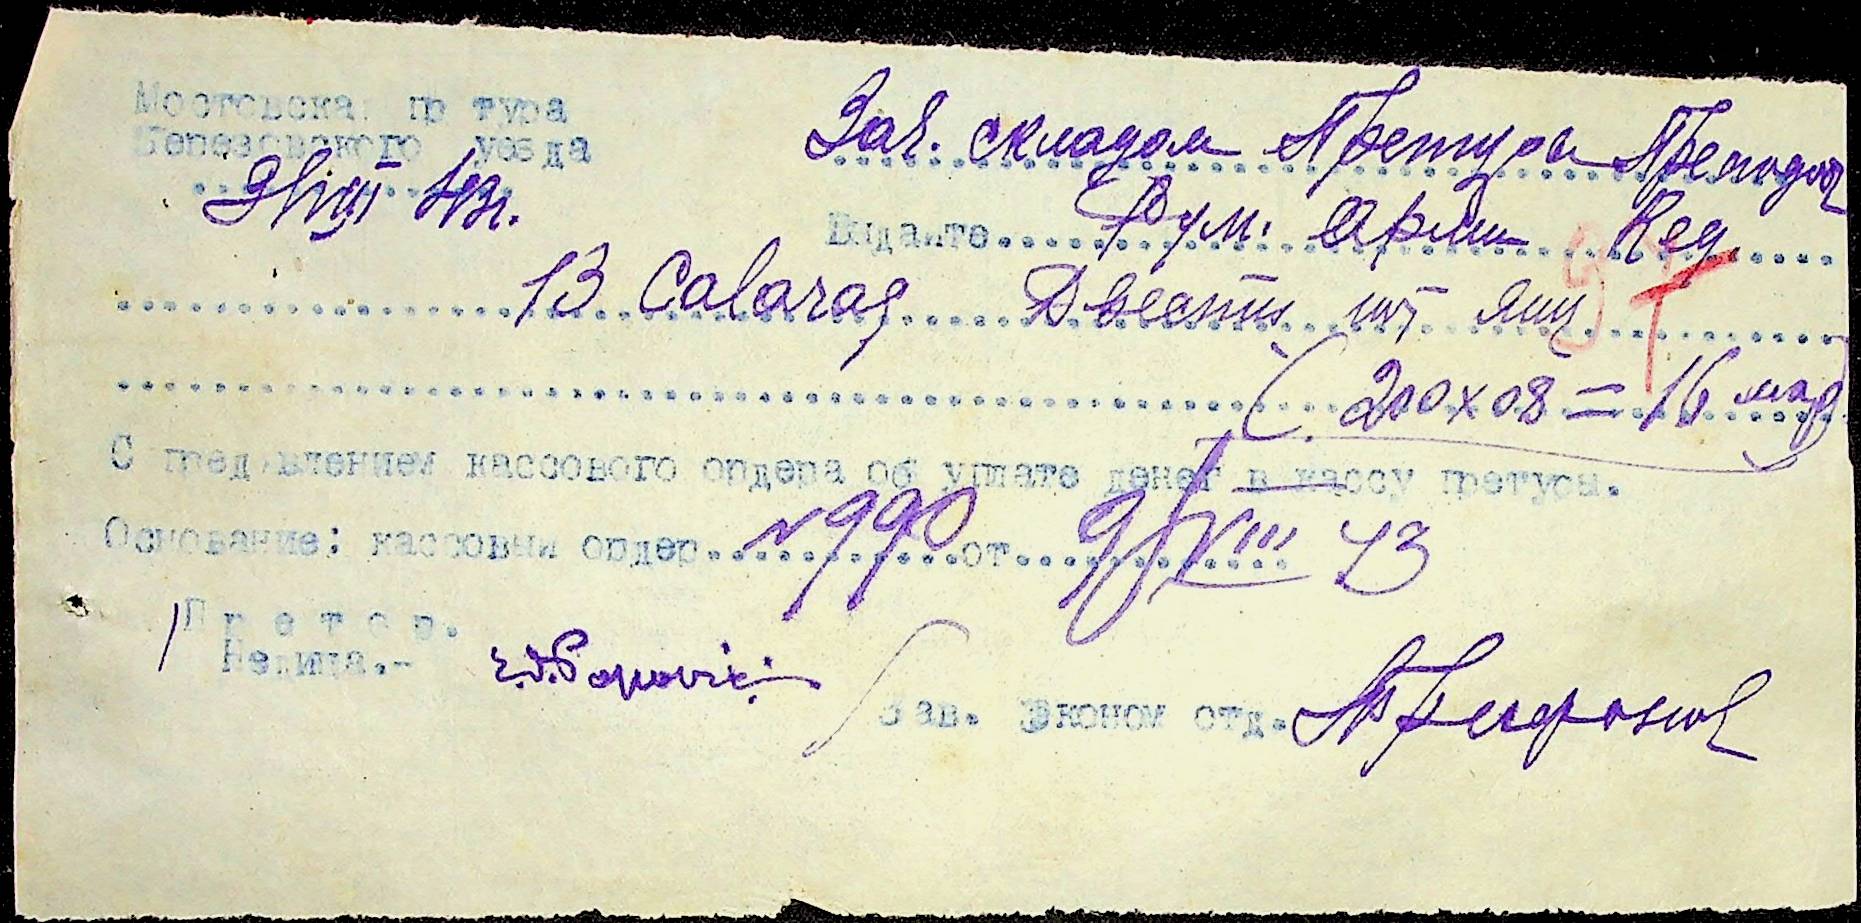 Мостовска претура
Березовского уезда
9/VIII 43г.
Зав. складом Претуры
Выдайте.....Рум. Армии Reg.....
13 Calaraş Двести шт яиц
(200х08=16 мар)
С предявлением кассового ордера об уплате денег в кассу претуры.
Основание: кассовый ордер N 990 от 9/VIII 43
Претор.
Зав. Эконом отд. Трифонов